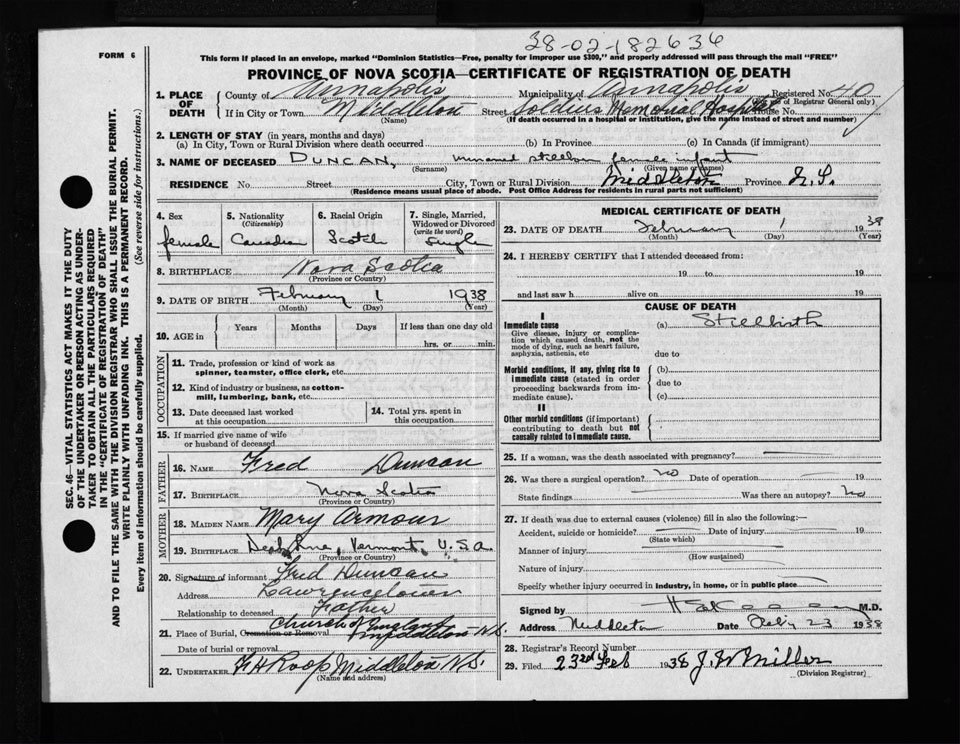 FORM 6
38-02-182636
This form if placed in an envelope, marked "Dominion Statistics—Free, penalty for improper use $300," and properly addressed will pass through the mail "FREE"
PROVINCE OF NOVA SCOTIA—CERTIFICATE OF REGISTRATION OF DEATH
1. PLACE OF DEATH
County of Annapolis Municipality of Annapolis Registered No. 40
(For use of Registrar General only)
If in City or Town Middleton Street Soldiers Memorial Hospital House No.
(If death occurred in a hospital or institution, give the name instead of street and number)
2. LENGTH OF STAY (in years, months and days)
(a) In City, Town or Rural Division where death occurred (b) In Province (c) In Canada (if immigrant)
3. NAME OF DECEASED DUNCAN, unnamed stillborn female infant
(Surname) (Given name or names)
RESIDENCE No. Street City, Town or Rural Division Middleton Province N.S.
(Residence means usual place of abode. Post Office Address for residents in rural parts not sufficient)
4. Sex female
5. Nationality (Citizenship) Canadian
6. Racial Origin Scotch
7. Single, Married, Widowed or Divorced (write the word) Single
8. BIRTHPLACE Nova Scotia
(Province or Country)
9. DATE OF BIRTH February 1 1938
(Month) (Day) (Year)
10. AGE in Years Months Days If less than one day old
hrs. or min.
OCCUPATION
11. Trade, profession or kind of work as spinner, teamster, office clerk, etc.
12. Kind of industry or business, as cotton-mill, lumbering, bank, etc.
13. Date deceased last worked at this occupation
14. Total yrs. spent in this occupation
15. If married give name of wife or husband of deceased
FATHER
16. NAME Fred Duncan
17. BIRTHPLACE Nova Scotia
(Province or Country)
MOTHER
18. MAIDEN NAME Mary Armour
19. BIRTHPLACE Vermont, U.S.A.
(Province or Country)
20. Signature of informant Fred Duncan
Address Lawrencetown
Relationship to deceased Father
21. Place of Burial, Cremation or Removal Church of England Middleton N.S.
Date of burial or removal
22. UNDERTAKER F H Roop Middleton N.S.
(Name and address)
MEDICAL CERTIFICATE OF DEATH
23. DATE OF DEATH February 1 1938
(Month) (Day) (Year)
24. I HEREBY CERTIFY that I attended deceased from:
19 to 19
and last saw h alive on 19
CAUSE OF DEATH
I
Immediate cause
Give disease, injury or complication which caused death, not the mode of dying, such as heart failure, asphyxia, asthenia, etc
(a) Stillbirth
due to
Morbid conditions, if any, giving rise to immediate cause (stated in order proceeding backwards from immediate cause).
(b)
due to
(c)
II
Other morbid conditions (if important) contributing to death but not causally related to immediate cause.
25. If a woman, was the death associated with pregnancy?
26. Was there a surgical operation? no Date of operation 19
State findings Was there an autopsy? No
27. If death was due to external causes (violence) fill in also the following:—
Accident, suicide or homicide? Date of injury 19
(State which)
Manner of injury
(How sustained)
Nature of injury
Specify whether injury occurred in industry, in home, or in public place
Signed by M.D.
Address Middleton Date Feby 23 1938
28. Registrar's Record Number
29. Filed 23rd Feb 1938 J. W. Miller
(Division Registrar)
SEC. 46—VITAL STATISTICS ACT MAKES IT THE DUTY
OF THE UNDERTAKER OR PERSON ACTING AS UNDER-
TAKER TO OBTAIN ALL THE PARTICULARS REQUIRED
IN THE "CERTIFICATE OF REGISTRATION OF DEATH"
AND TO FILE THE SAME WITH THE DIVISION REGISTRAR WHO SHALL ISSUE THE BURIAL PERMIT.
WRITE PLAINLY WITH UNFADING INK. THIS IS A PERMANENT RECORD.
Every item of information should be carefully supplied. (See reverse side for instructions).